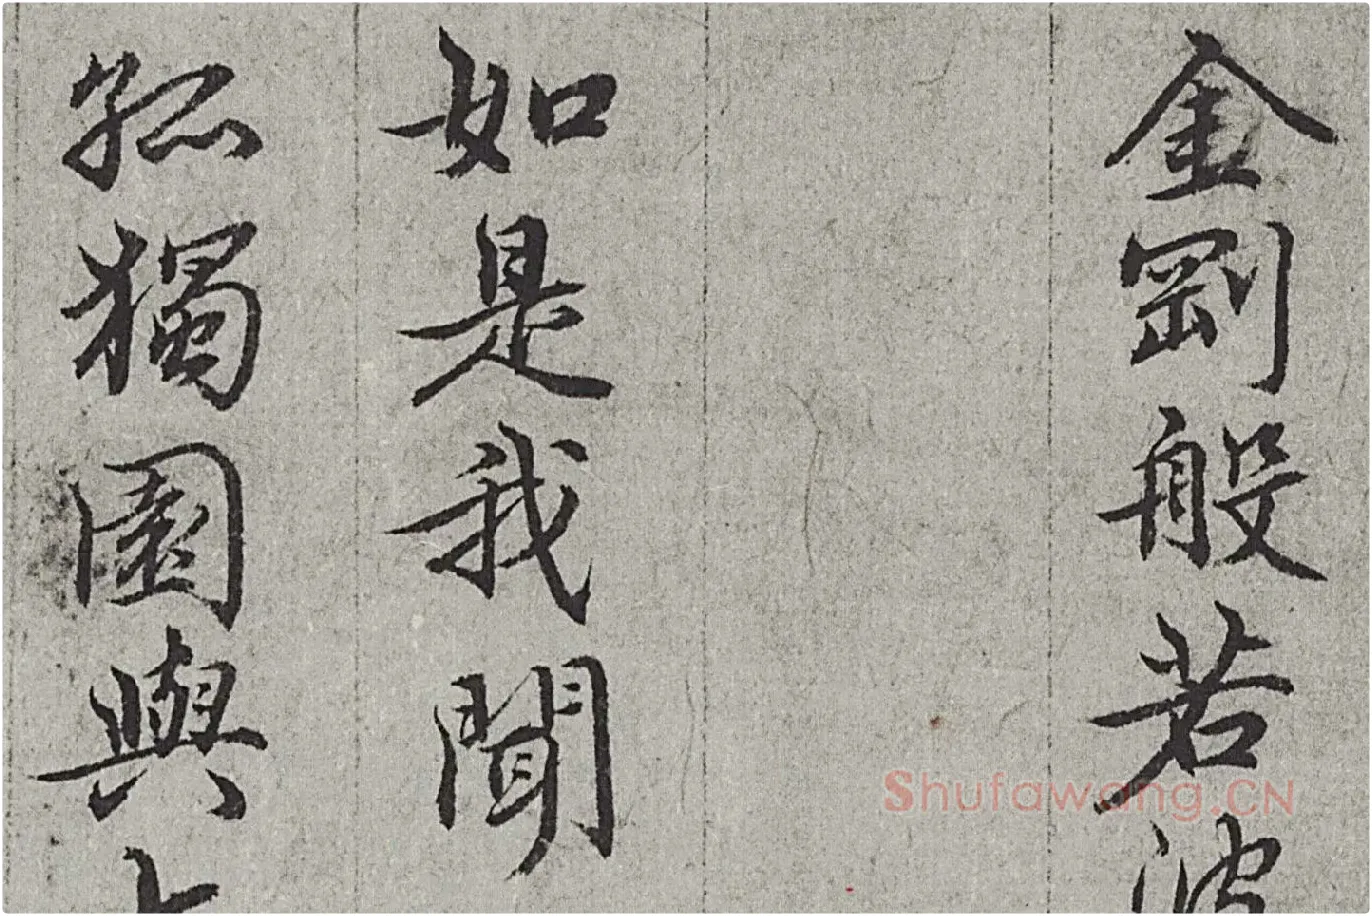 金剛般若波
如是我聞
孤獨園與
Shufawang.CN